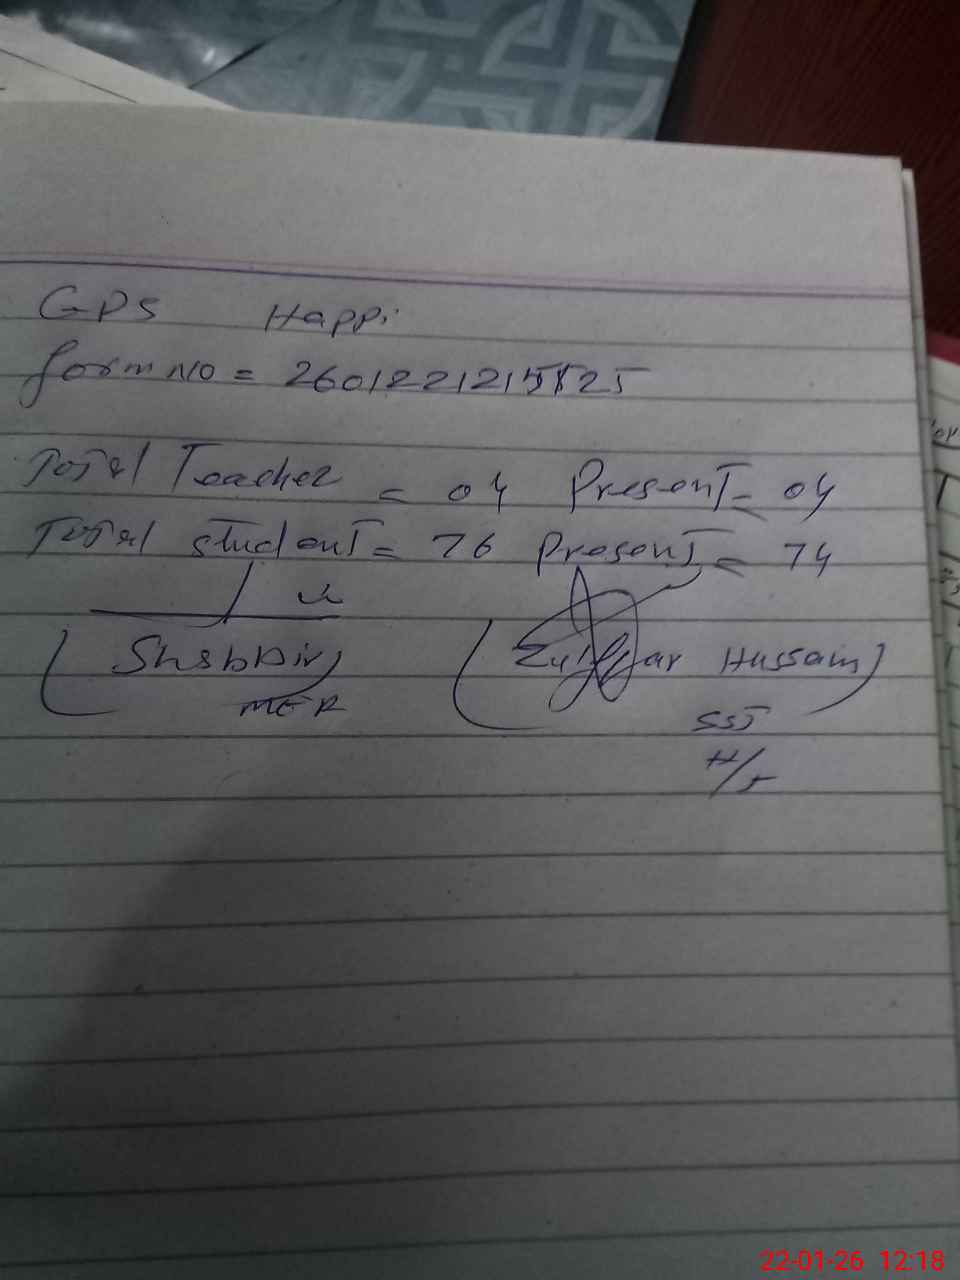 GPS Happi
form no = 2601221215825
Total Teacher = 04 Present = 04
Total student = 76 Present = 74
(Shabbir)
MER
(Zulfqar Hussain)
SST
H/T
22-01-26 12:18